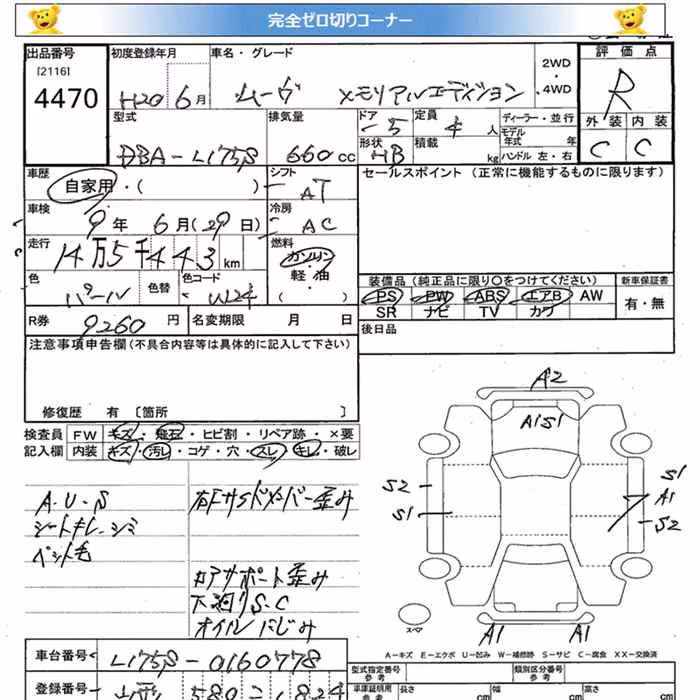 完全ゼロ切りコーナー
出品番号 初度登録年月 車名・グレード 2WD ・4WD 評価点
[2116]
4470 H20 6月 ムーヴ メモリアルエディション R
型式 排気量 ドア 5 定員 4人 ディーラー・並行 外装 内装
モデル年式 年
DBA-L175S 660cc 形状 HB 積載 kg ハンドル 左・右 C C
車歴 シフト セールスポイント (正常に機能するものに限ります)
自家用・( ) AT
車検 冷房
9年 6月(29日) AC
走行 燃料
14万5千443km ガソリン
軽・油
( )
色 色替 色コード 装備品 (純正品に限り○をつけてください) 新車保証書
パール W24 PS PW ABS エアB AW 有・無
SR ナビ TV カワ
R券 9260円 名変期限 月 日 後日品
注意事項申告欄(不具合内容等は具体的に記入して下さい)
修復歴 有 〔箇所 〕
検査員 FW キズ・飛石・ヒビ割・リペア跡・×要
記入欄 内装 キズ・汚レ・コゲ・穴・スレ・キレ・破レ
A2
A1S1
A.U.S 右Fサイドメンバー歪み S2 S1
シートキレ・シミ S1 A1
ペット毛 S2
コアサポート歪み
下廻りS.C
オイルにじみ スペア A1 A1
A-キズ E-エクボ U-凹み W-補修跡 S-サビ C-腐食 XX-交換済
車台番号 L175S-0160778 型式指定番号 参考 類別区分番号 参考
登録番号 580 1824 車庫証明用 参考 長さ cm 幅 cm 高さ cm